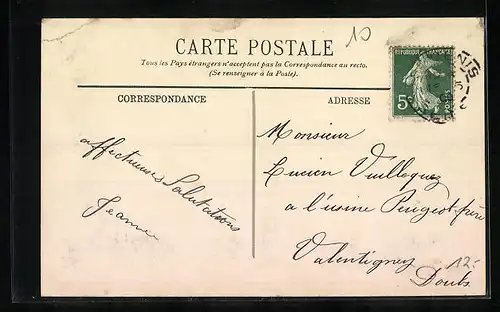 10
CARTE POSTALE
Tous les Pays étrangers n'acceptent pas la Correspondance au recto.
(Se renseigner à la Poste).
REPUBLIQUE FRANÇAISE
5
CORRESPONDANCE
affectueuses Salutations
Jeanne
ADRESSE
Monsieur
Lucien
a l'usine Peugeot frère
Valentigney
Doubs
12.-